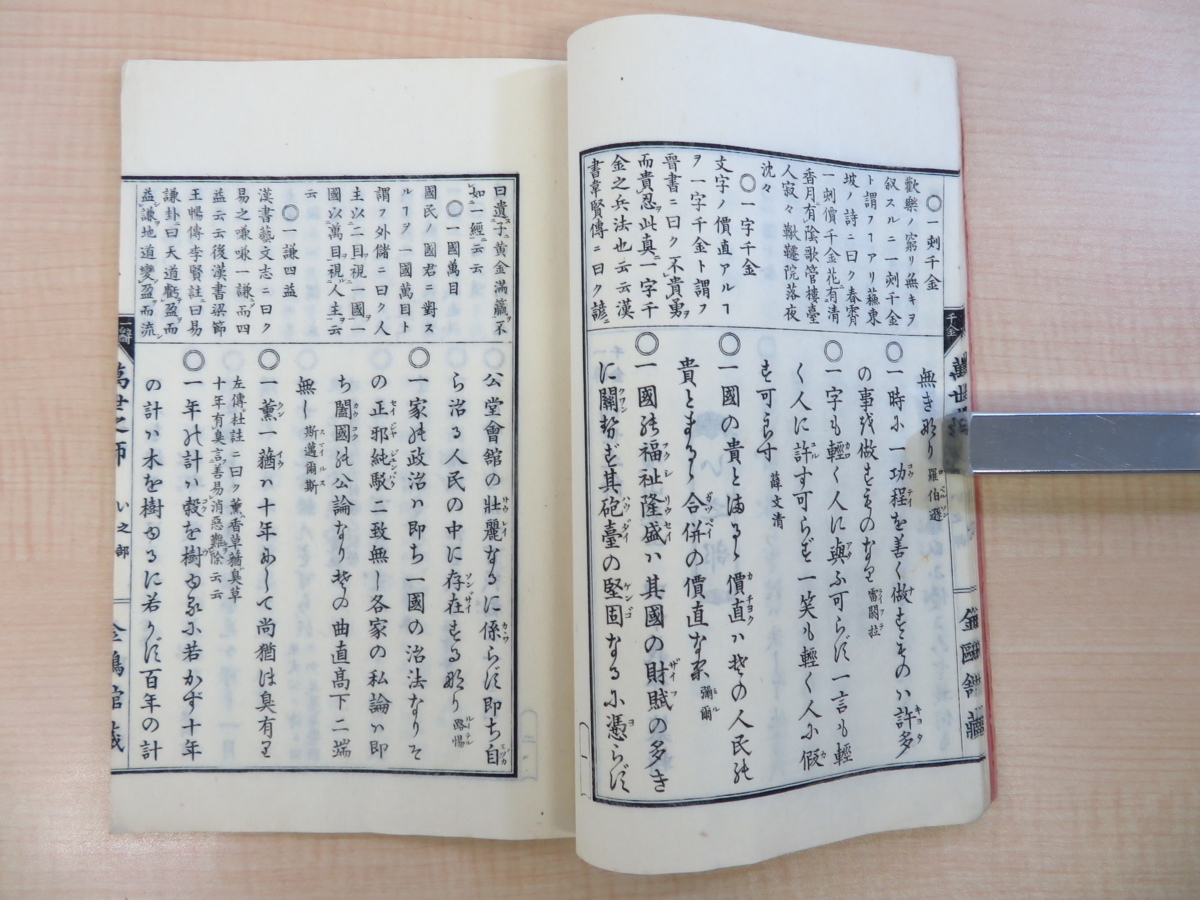 ◯一刻千金
歡樂ノ窮リ無キヲ
叙スルニ一刻千金
ト謂フヿアリ蘓東
坡ノ詩ニ曰ク春宵
一刻價千金花有清
香月有陰歌管樓臺
人寂々鞦韆院落夜
沈々
◯一字千金
文字ノ價直アルヿ
ヲ一字千金ト謂フ
晉書ニ曰ク不貴勇
而貴忍此真一字千
金之兵法也云云漢
書韋賢傳ニ曰ク諺ニ
無き那り 羅伯遜
◯一時尓一功程を善く做春ものハ許多
の事越做春ものな里 雷鬪拉
◯一字も輕く人に與ふ可ら須一言も輕
く人に許す可ら須一笑も輕く人尓假
春可らす 薛文清
◯一國の貴とまるゝ價直ハ其の人民能
貴とまるゝ合併の價直な里 彌爾
◯一國能福祉隆盛ハ其國の財賦の多き
に關勢春其砲臺の堅固なる尓憑ら須
曰遺子黄金滿籝不
如一經云云
◯一國萬目
國民ノ國君ニ對ス
ルヿヲ一國萬目ト
謂フ外儲ニ曰ク人
主以二目視一國一
國以萬目視人主云
云
◯一謙四益
漢書藝文志ニ曰ク
易之嗛嗛一謙而四
益云云後漢書梁節
王暢傳李賢註曰易
謙卦曰天道虧盈而
益謙地道變盈而流
公堂會館の壯麗なるに係ら須即ち自
ら治る人民の中に存在春る那り 路惕
◯一家能政治ハ即ち一國の治法なりそ
の正邪純駁二致無し各家の私論ハ即
ち闔國能公論なり其の曲直高下二端
無し 斯邁爾斯
◯一薫一蕕ハ十年ありて尚猶ほ臭有り
左傳杜註ニ曰ク薫香草蕕臭草
十年有臭言善易消惡難除云云
◯一年能計ハ穀を樹ゆる尓若かず十年
の計ハ木を樹ゆるに若か須百年の計
萬世之師 い之部
金鴎館蔵